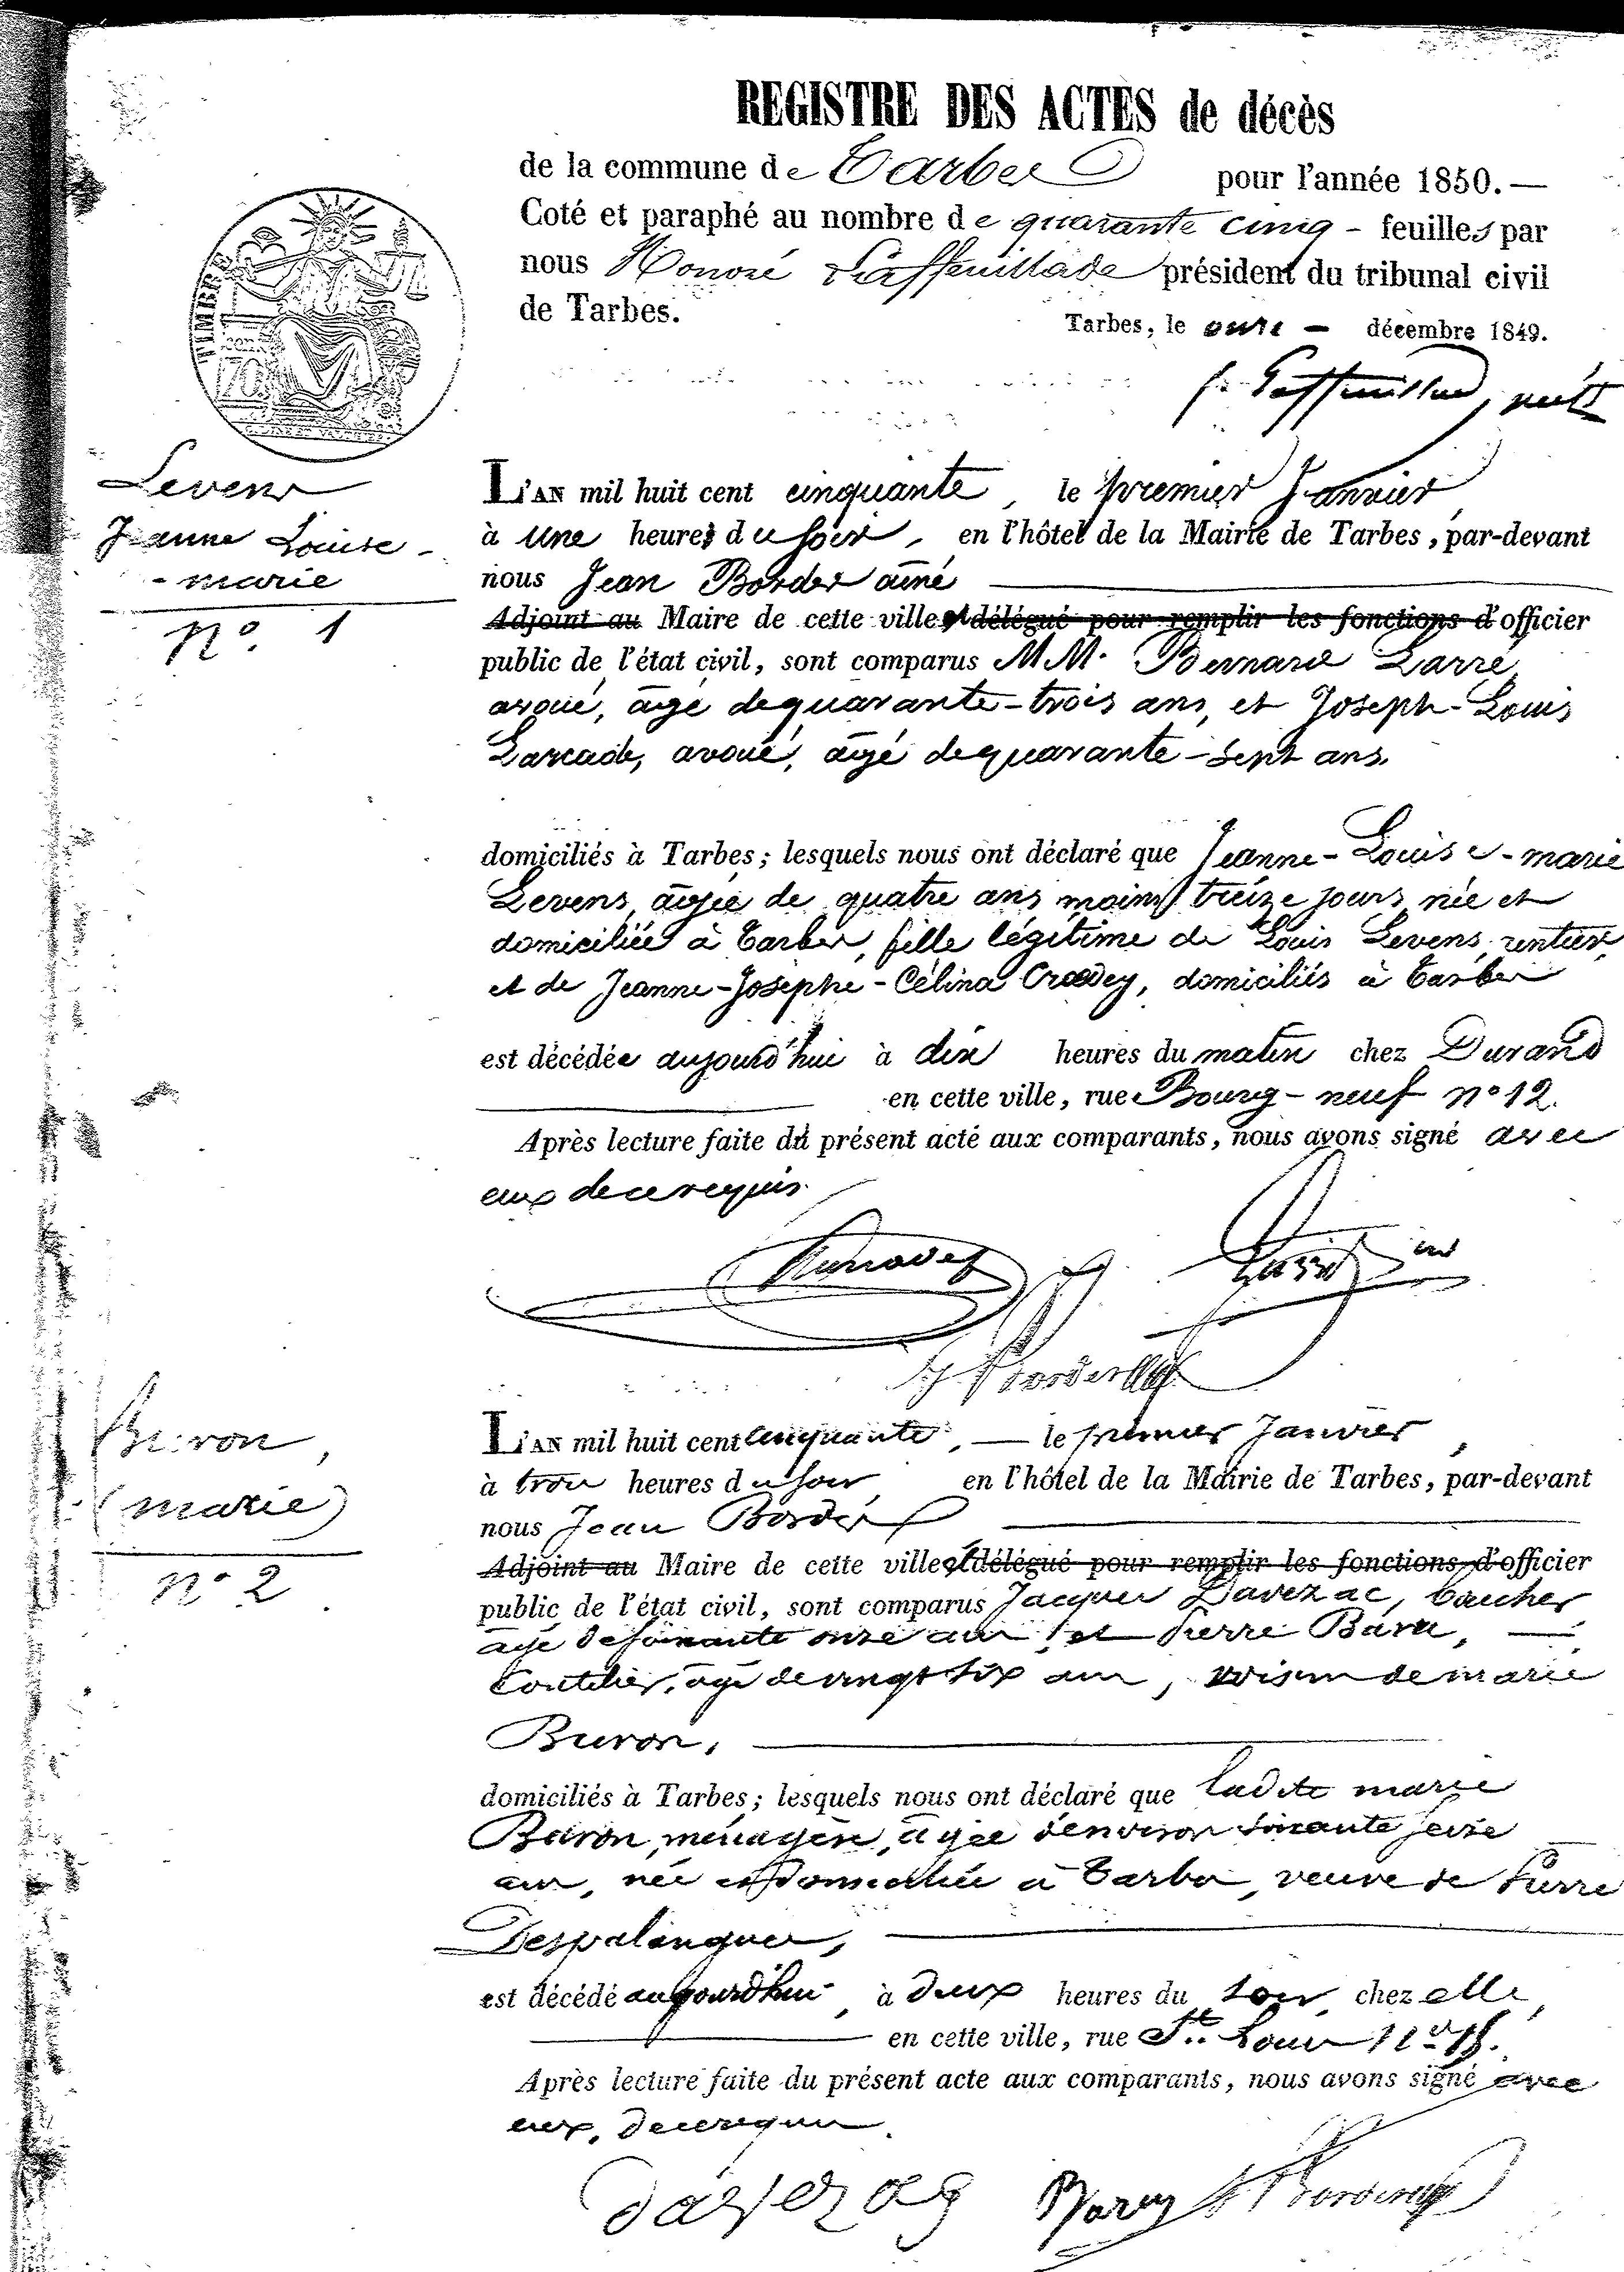 REGISTRE DES ACTES de décès
de la commune de Tarbes pour l'année 1850.—
Coté et paraphé au nombre de quarante cinq - feuilles par
nous Honoré Laffeuillade président du tribunal civil
de Tarbes.
Tarbes, le onze — décembre 1849.
TIMBRE
Levens
Jeanne Louise-
-marie
N°. 1
L'AN mil huit cent cinquante, le premier Janvier,
à une heures du soir, en l'hôtel de la Mairie de Tarbes, par-devant
nous Jean Bordes ainé
Adjoint au Maire de cette ville et délégué pour remplir les fonctions d'officier
public de l'état civil, sont comparus MM. Bernard Larré,
avoué, âgé de quarante-trois ans, et Joseph-Louis
Lascade, avoué, âgé de quarante-sept ans.
domiciliés à Tarbes; lesquels nous ont déclaré que Jeanne-Louise-marie
Levens, âgée de quatre ans moins treize jours, née et
domiciliée à Tarbes, fille légitime de Louis Levens, rentier,
et de Jeanne-Josephe-Célina, domiciliés à Tarbes
est décédée aujourd'hui à dix heures du matin chez Durand
en cette ville, rue Bourg-neuf n° 12.
Après lecture faite du présent acte aux comparants, nous avons signé avec
eux de ce requis.
Buron,
(marie)
n° 2
L'AN mil huit cent cinquante, — le premier Janvier,
à trois heures du soir, en l'hôtel de la Mairie de Tarbes, par-devant
nous Jean Bordes
Adjoint au Maire de cette ville et délégué pour remplir les fonctions d'officier
public de l'état civil, sont comparus Jacques Davezac, boucher,
âgé de soixante onze ans, et Pierre
Coutelier, âgé de vingt six ans, voisins de marie
Buron,
domiciliés à Tarbes; lesquels nous ont déclaré que ladite marie
Buron, ménagère, âgée d'environ soixante seize
ans, née et domiciliée à Tarbes, veuve de Pierre
Despalanques,
est décédé aujourd'hui, à deux heures du soir, chez elle,
en cette ville, rue St. Louis n°
Après lecture faite du présent acte aux comparants, nous avons signé avec
eux, de ce requis.
davezac